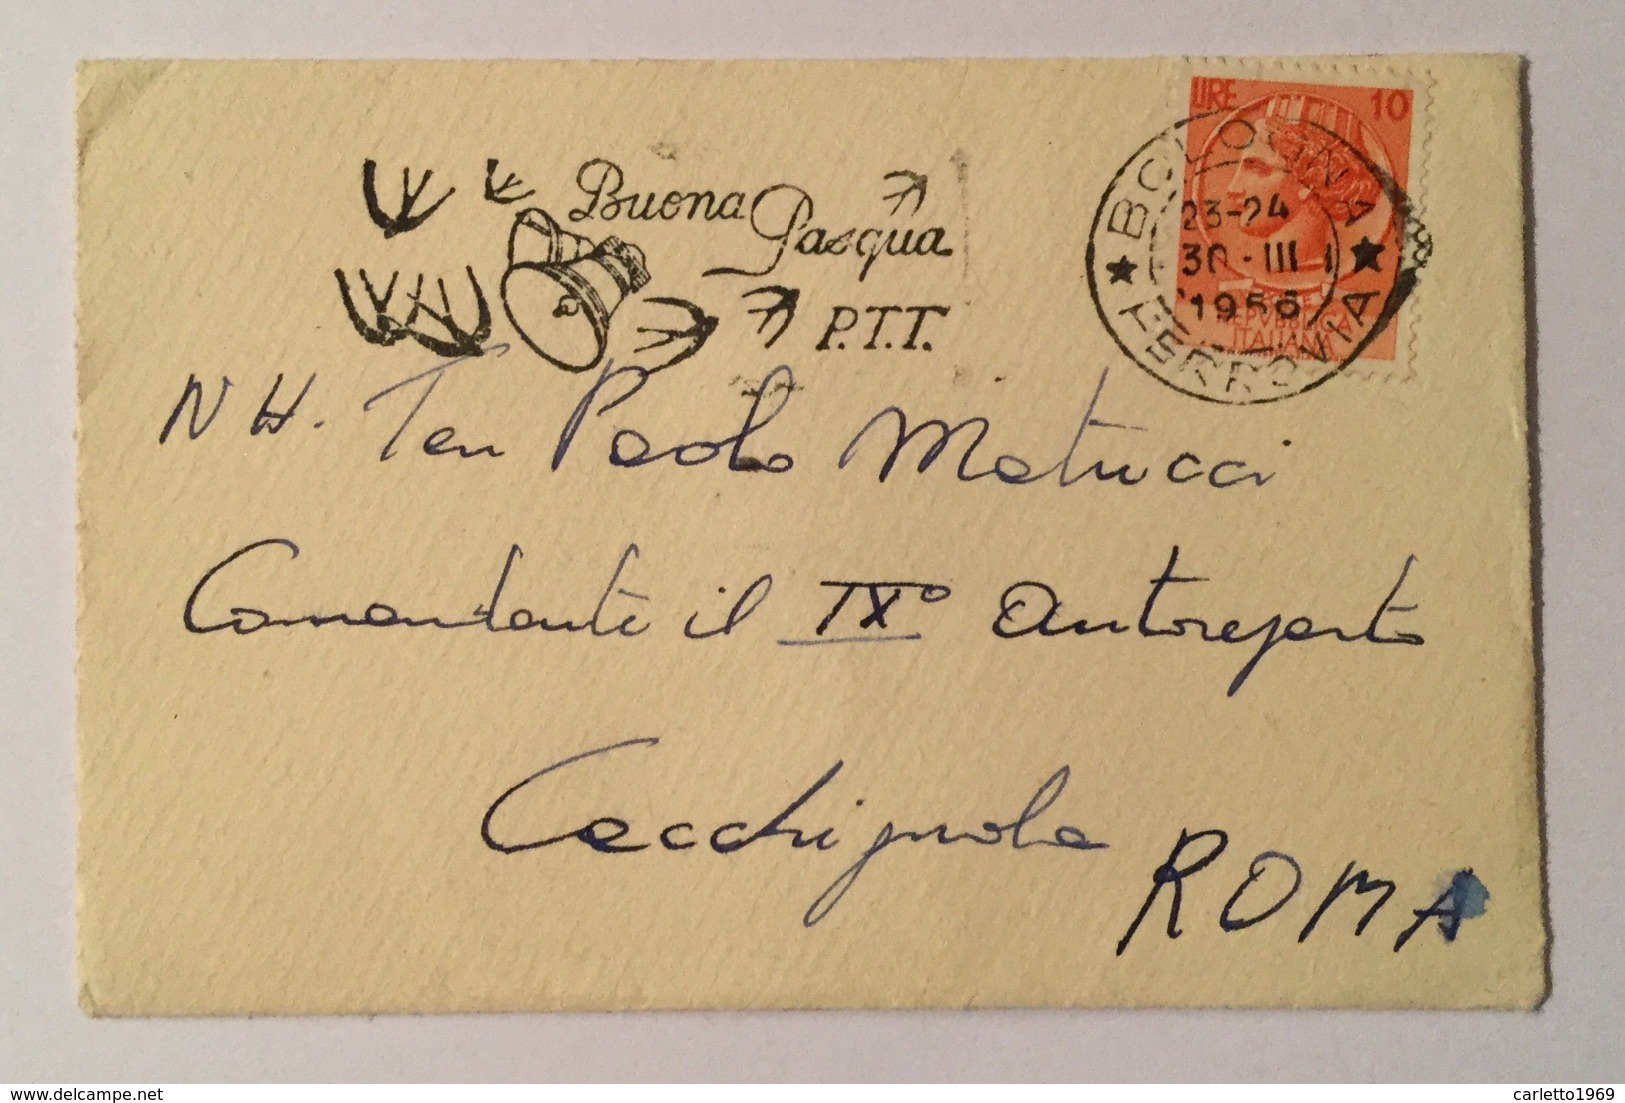 Buona
Pasqua
P.T.T.
LIRE 10
BOLOGNA
23-24
30 - III
1956
REPUBBLICA
ITALIANA
FERROVIA
N H. Ten Paolo Matucci
Comandante il IX° Autoreparto
Cecchignola
ROMA
delcampe.net
carletto1969